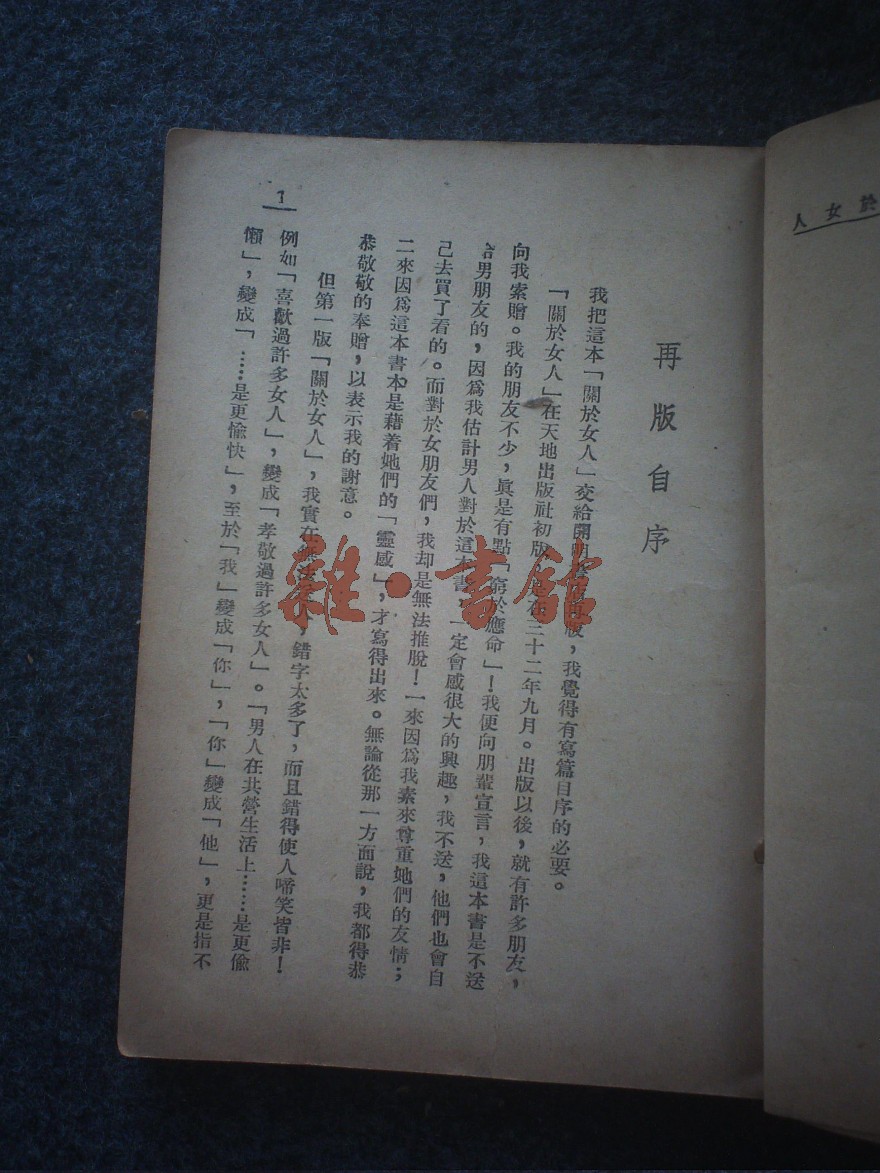 於女人
再版自序
我把這本「關於女人」交給開明書店再版，我覺得有寫篇自序的必要。
「關於女人」在天地出版社初版，是在三十二年九月。出版以後，就有許多朋友，
向我索贈。我的朋友不少，眞是有點「窮於應命」！我便向朋輩宣言，我這本書是不送
給男朋友的，因爲我估計男人對於這本書，一定會感很大的興趣，我不送，他們也會自
己去買了看的。而對於女朋友們，我却是無法推脫！一來因爲我素來尊重她們的友情；
二來因爲這本書本是藉着她們的「靈感」，才寫得出來。無論從那一方面說，我都得恭
恭敬敬的奉贈，以表示我的謝意。
但第一版「關於女人」，我實在無法送人，錯字太多了，而且錯得使人啼笑皆非！
例如「喜歡過許多女人」，變成「孝敬過許多女人」。「男人在共營生活上……是更偷
懶」，變成「……是更愉快」，至於「我」變成「你」，「你」變成「他」，更是指不
1
雜·書館